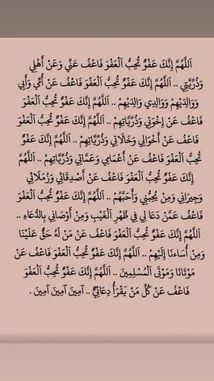 اَللَّهُمَّ إِنَّكَ عَفُوٌّ تُحِبُّ الْعَفْوَ فَاعْفُ عَنِّي وَعَنْ أَهْلِي
وَذُرِّيَّتِي .. اَللَّهُمَّ إِنَّكَ عَفُوٌّ تُحِبُّ الْعَفْوَ فَاعْفُ عَنْ أُمِّي وَأَبِي
وَوَالِدَيْهِمْ وَوَالِدِي وَالِدَيْهِمْ .. اَللَّهُمَّ إِنَّكَ عَفُوٌّ تُحِبُّ الْعَفْوَ
فَاعْفُ عَنْ إِخْوَتِي وَذُرِّيَّاتِهِمْ .. اَللَّهُمَّ إِنَّكَ عَفُوٌّ تُحِبُّ الْعَفْوَ
فَاعْفُ عَنْ أَخْوَالِي وَخَالَاتِي وَذُرِّيَّاتِهِمْ .. اَللَّهُمَّ إِنَّكَ عَفُوٌّ
تُحِبُّ الْعَفْوَ فَاعْفُ عَنْ أَعْمَامِي وَعَمَّاتِي وَذُرِّيَّاتِهِمْ .. اَللَّهُمَّ
إِنَّكَ عَفُوٌّ تُحِبُّ الْعَفْوَ فَاعْفُ عَنْ أَصْدِقَائِي وَزُمَلَائِي
وَجِيرَانِي وَمَنْ يُحِبُّنِي وَأُحِبُّهُمْ .. اَللَّهُمَّ إِنَّكَ عَفُوٌّ تُحِبُّ الْعَفْوَ
فَاعْفُ عَمَّنْ دَعَا لِي فِي ظَهْرِ الْغَيْبِ وَمَنْ أَوْصَانِي بِالدُّعَاءِ ..
اَللَّهُمَّ إِنَّكَ عَفُوٌّ تُحِبُّ الْعَفْوَ فَاعْفُ عَنْ مَنْ لَهُ حَقٌّ عَلَيْنَا
وَمَنْ أَسَأْنَا إِلَيْهِمْ .. اَللَّهُمَّ إِنَّكَ عَفُوٌّ تُحِبُّ الْعَفْوَ فَاعْفُ عَنْ
مَوْتَانَا وَمَوْتَى الْمُسْلِمِينَ .. اَللَّهُمَّ إِنَّكَ عَفُوٌّ تُحِبُّ الْعَفْوَ
فَاعْفُ عَنْ كُلِّ مَنْ يَقْرَأُ دُعَائِيْ .. آمِينَ آمِينَ آمِينَ .